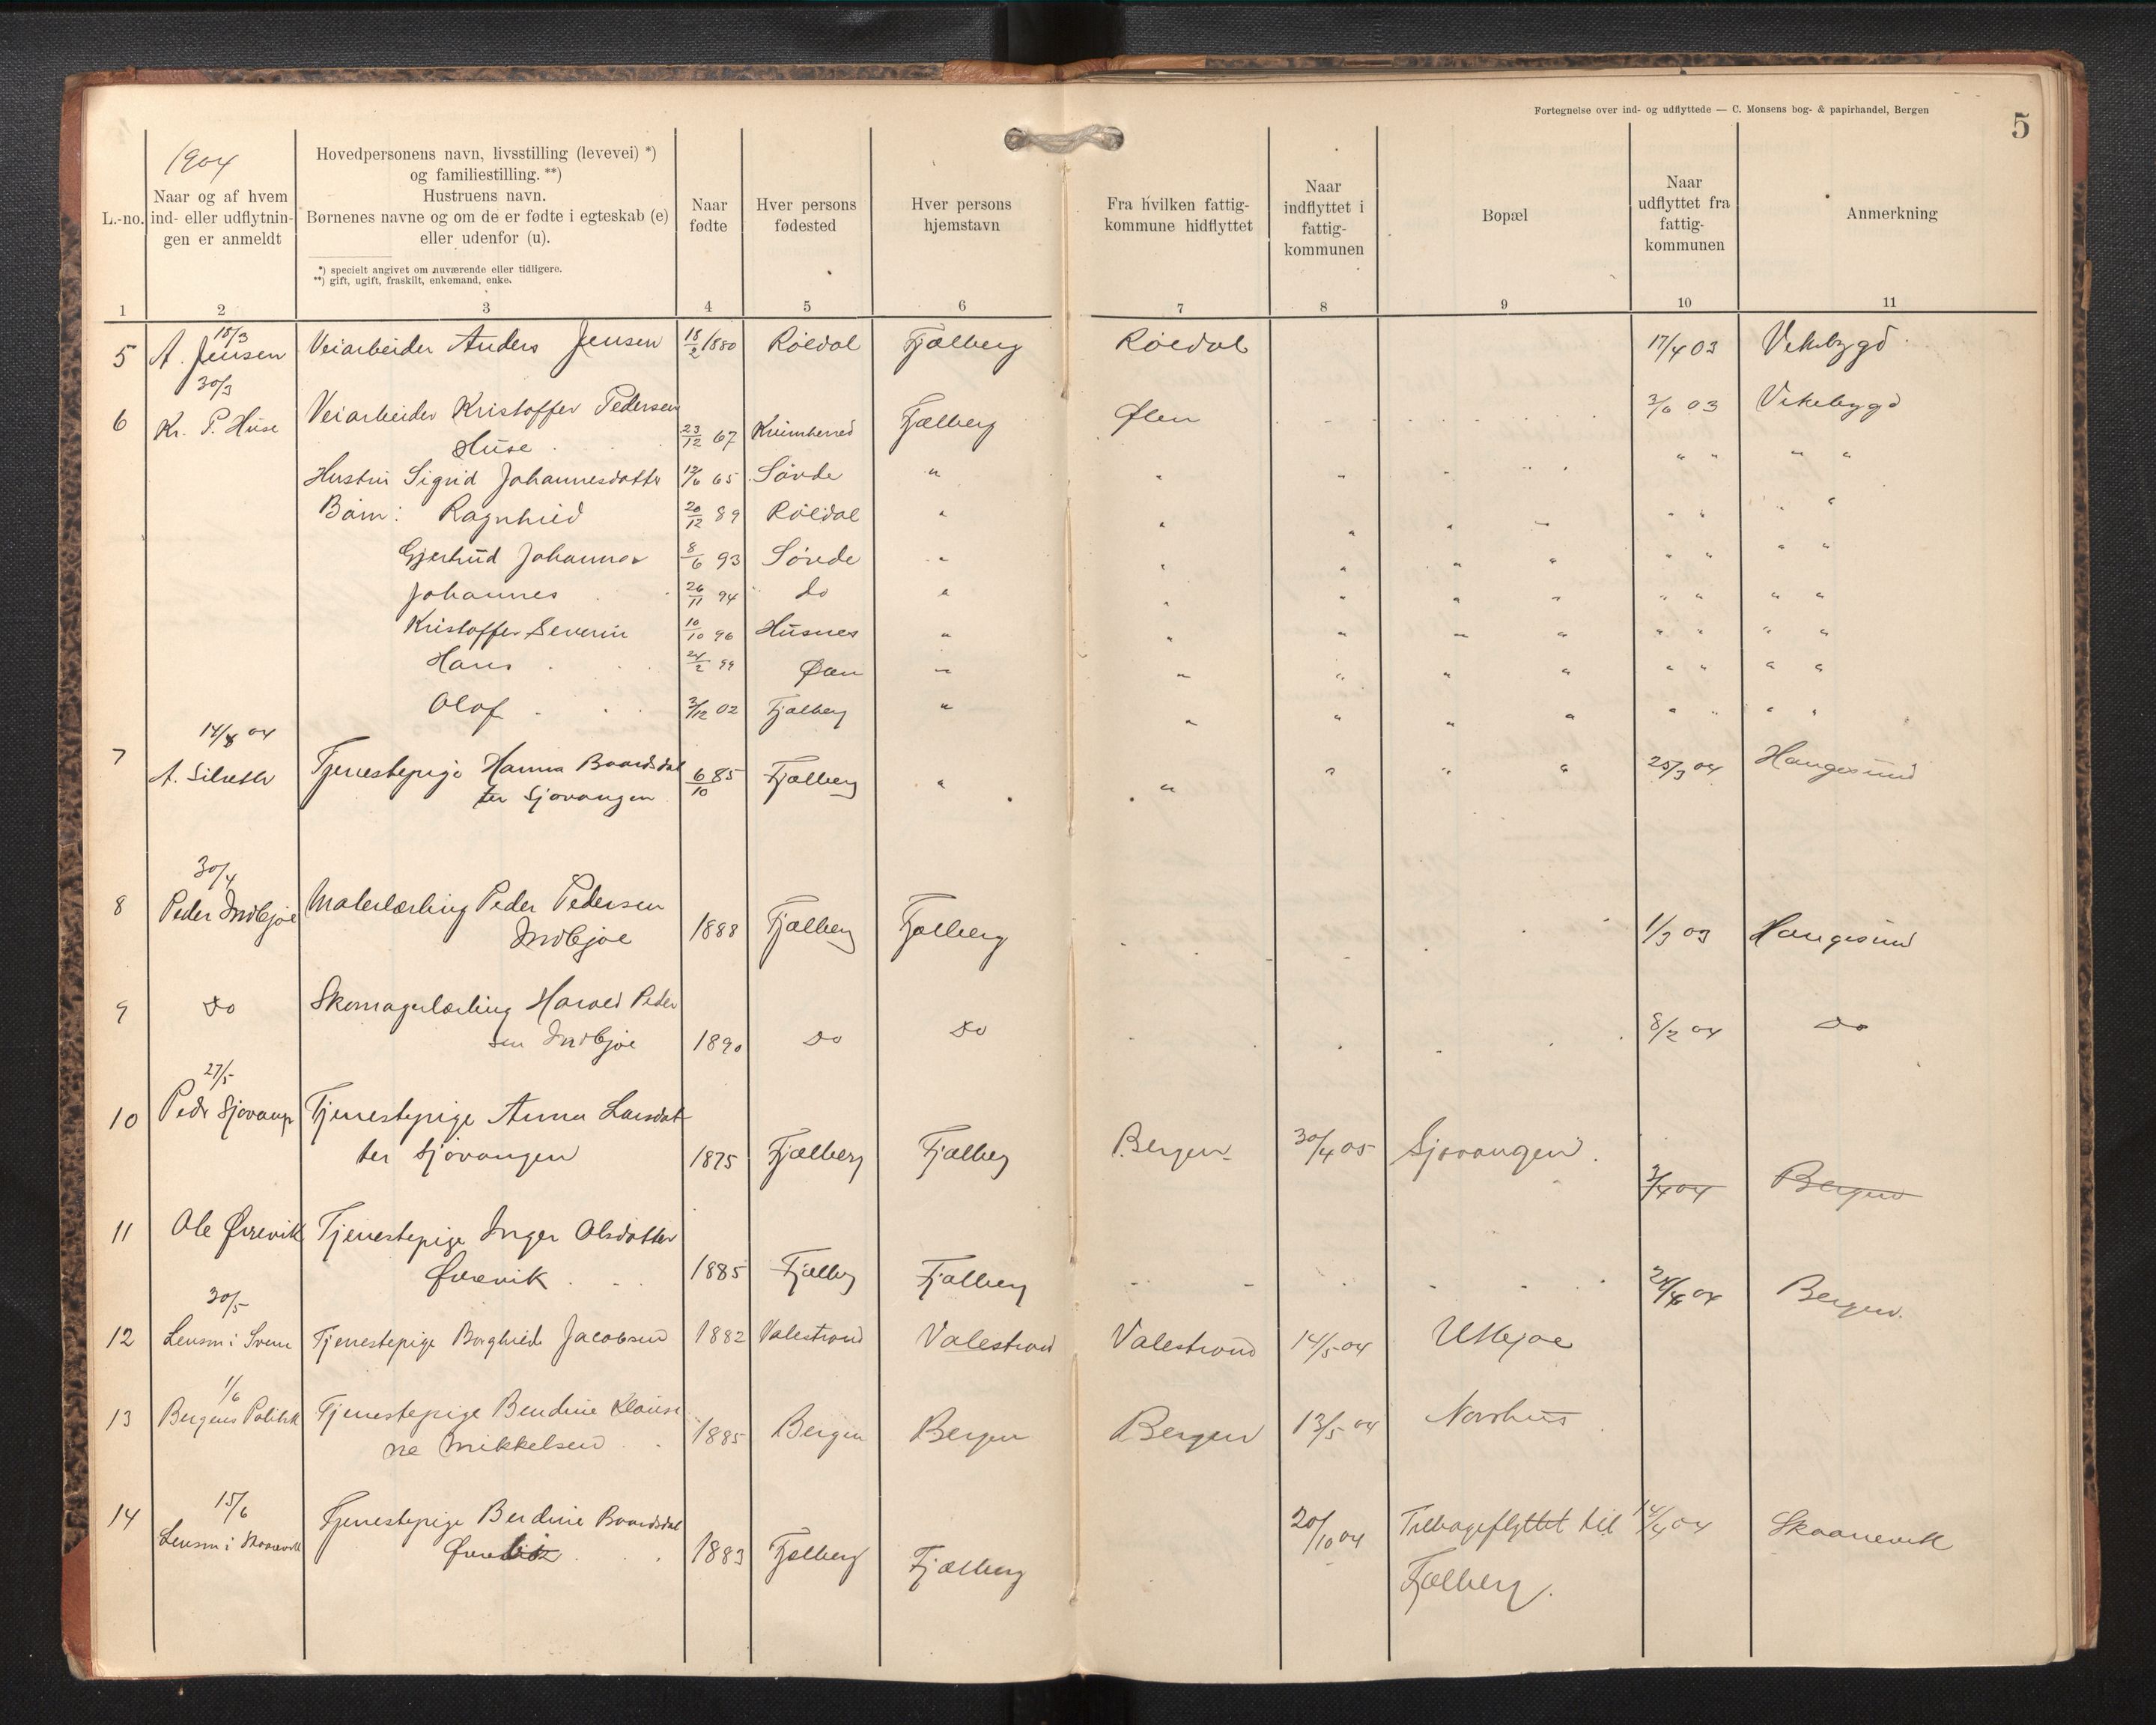 Fortegnelse over ind- og udflyttede — C. Monsens bog- & papirhandel, Bergen
5
1904
L.-no.
Naar og af hvem
ind- eller udflytnin-
gen er anmeldt
Hovedpersonens navn, livsstilling (levevei) *)
og familiestilling. **)
Hustruens navn.
Børnenes navne og om de er fødte i egteskab (e)
eller udenfor (u).
*) specielt angivet om nuværende eller tidligere.
**) gift, ugift, fraskilt, enkemand, enke.
Naar
fødte
Hver persons
fødested
Hver persons
hjemstavn
Fra hvilken fattig-
kommune hidflyttet
Naar
indflyttet i
fattig-
kommunen
Bopæl
Naar
udflyttet fra
fattig-
kommunen
Anmerkning
1 2 3 4 5 6 7 8 9 10 11
18/3
5 A. Jensen Veiarbeider Anders Jensen 18/2 1880 Röldal Fjælberg Röldal 17/4 03 Vikebygd
30/3
6 Kr. P. Huse Veiarbeider Kristoffer Pedersen
Huse 23/12 67 Kvinnherred Fjælberg Ølen 3/6 03 Vikebygd
Hustru Sigrid Johannesdatter 12/6 65 Sövde " " " " " "
Börn: Ragnhild 20/12 89 Röldal " " " " " "
Gjertrud Johanna 8/6 93 Sövde " " " " " "
Johannes 26/11 94 do " " " " " "
Kristoffer Severin 10/10 96 Husnes " " " " " "
Hans 24/2 99 Ølen " " " " " "
Olaf 3/12 02 Fjælberg " " " " " "
14/4 04
7 A. Silseth Tjenestepige Hanna Baardsdat
ter Sjovangen 6/10 85 Fjælberg " " " " 25/3 04 Haugesund
30/4
8 Peder Indbjoe Malerlærling Peder Pedersen
Indbjoe 1888 Fjælberg Fjælberg 1/3 03 Haugesund
9 Do Skomagerlærling Harald Peder
sen Indbjoe 1890 Do Do 8/2 04 Do
27/5
10 Peder Sjovang Tjenestepige Anna Larsdat
ter Sjövangen 1875 Fjælberg Fjælberg Bergen 30/4 05 Sjovangen 3/4 04 Bergen
11 Ole Øvrevik Tjenestepige Inger Olsdatter
Øvrevik 1885 Fjælberg Fjælberg 24/4 04 Bergen.
30/5
12 Lensm i Sveen Tjenestepige Borghild Jacobsen 1882 Valestrand Valestrand Valestrand 14/5 04 Utbjoe
1/6
13 Bergens Politik Tjenestepige Bendine Klausi
ne Mikkelsen 1885 Bergen Bergen Bergen 13/5 04 Nordhus
15/6
14 Lensm i Skaanevik Tjenestepige Berdine Baardsdat
1883 Fjælberg Fjælberg 20/10 04 Tilbageflyttet til 14/4 04 Skaanevik
Fjælberg.